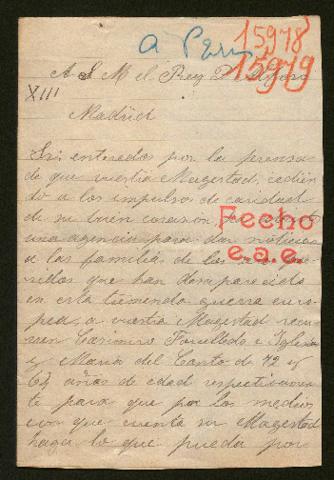 A Paris 15978
15979
A S M el Rey D. Alfonso
XIII
Madrid
Sr: enterados por la prensa
de que vuestra Magestad, cedien
do a los impulsos de caridad
de su buen corazon,
una agencia para dar noticias
a las familia de los
que han desaparecido
en esta tremenda guerra euro
pea, a vuestra Magestad recu
rren Casimiro e Iglesia
y Maria del Canto de 72 y
64 años de edad respectivamen
te para que por los medios
con que cuenta su Magestad
haga lo que pueda por
Fecho
e.a.e.